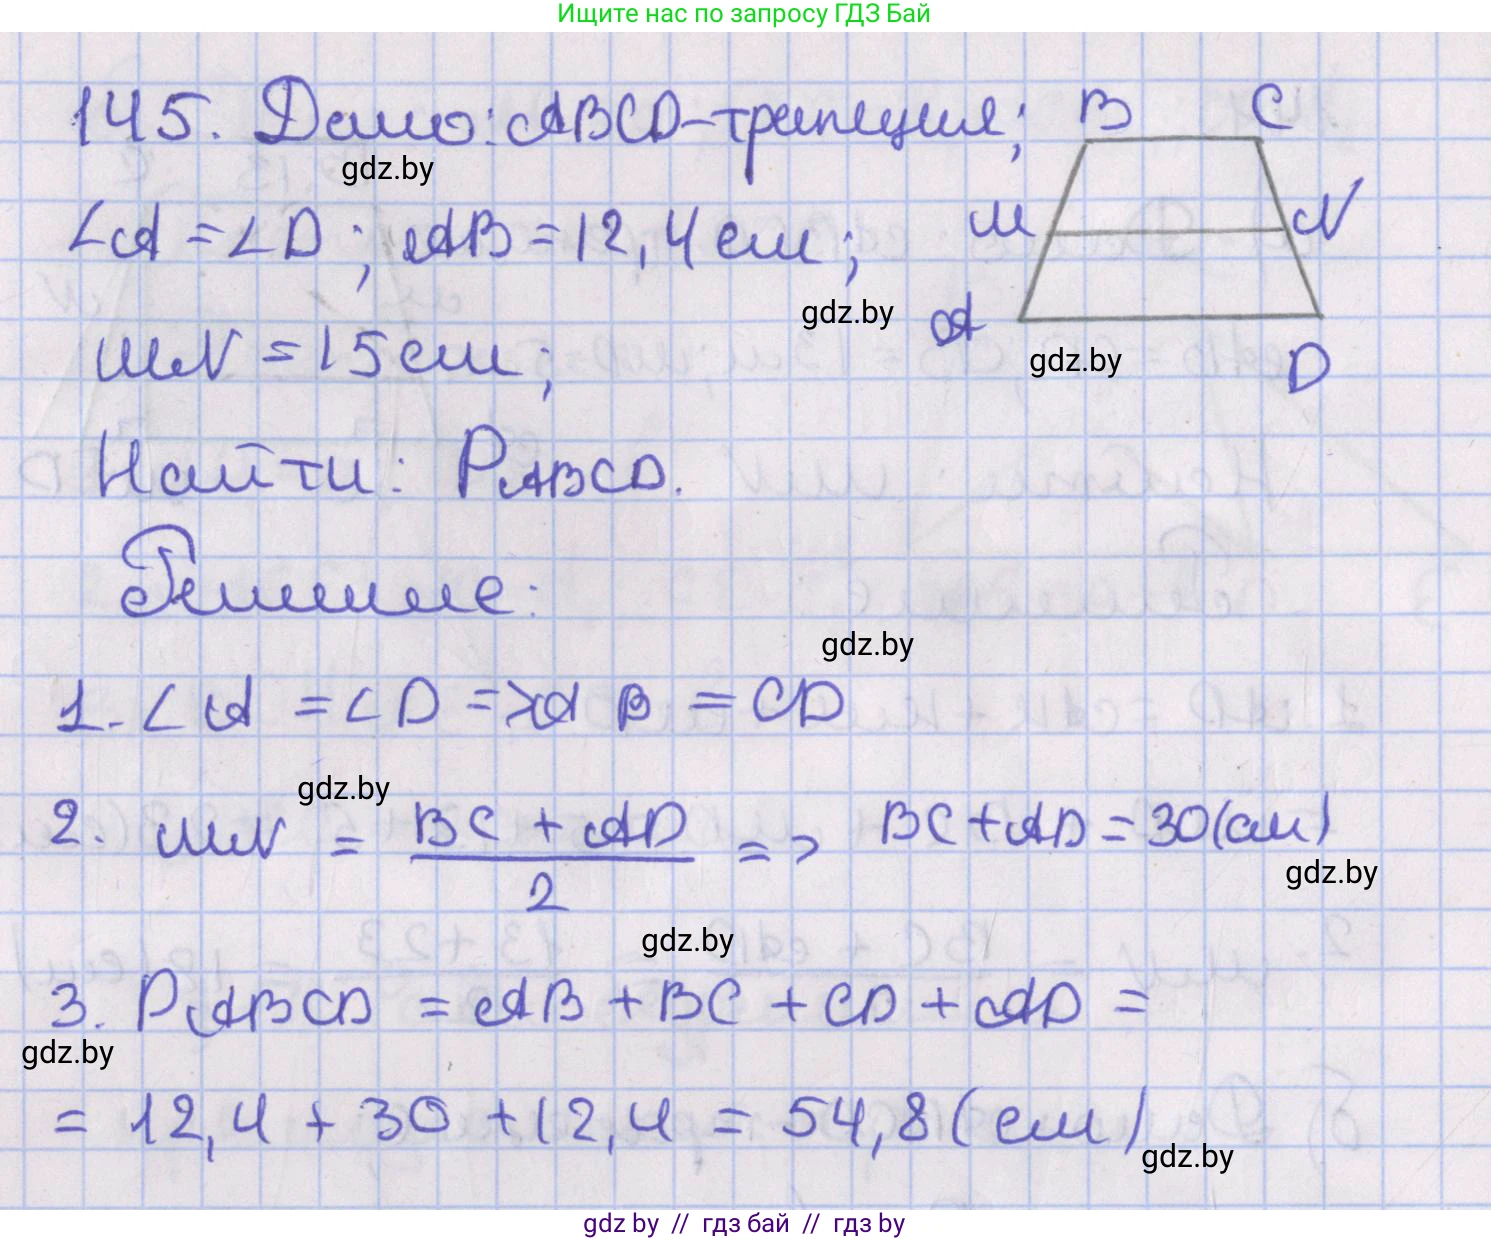 Ищите нас по запросу ГДЗ Бай
145. Дано: ABCD-трапеция;
B C
gdz.by
∠A = ∠D; AB = 12,4 см;
M N
gdz.by
A
MN = 15 см;
gdz.by
D
Найти: PABCD.
Решение:
gdz.by
1. ∠A = ∠D => AB = CD
gdz.by
2. MN = BC + AD / 2 => BC + AD = 30(см)
gdz.by
gdz.by
3. PABCD = AB + BC + CD + AD =
gdz.by
= 12,4 + 30 + 12,4 = 54,8 (см)
gdz.by
gdz by // гдз бай // гдз by